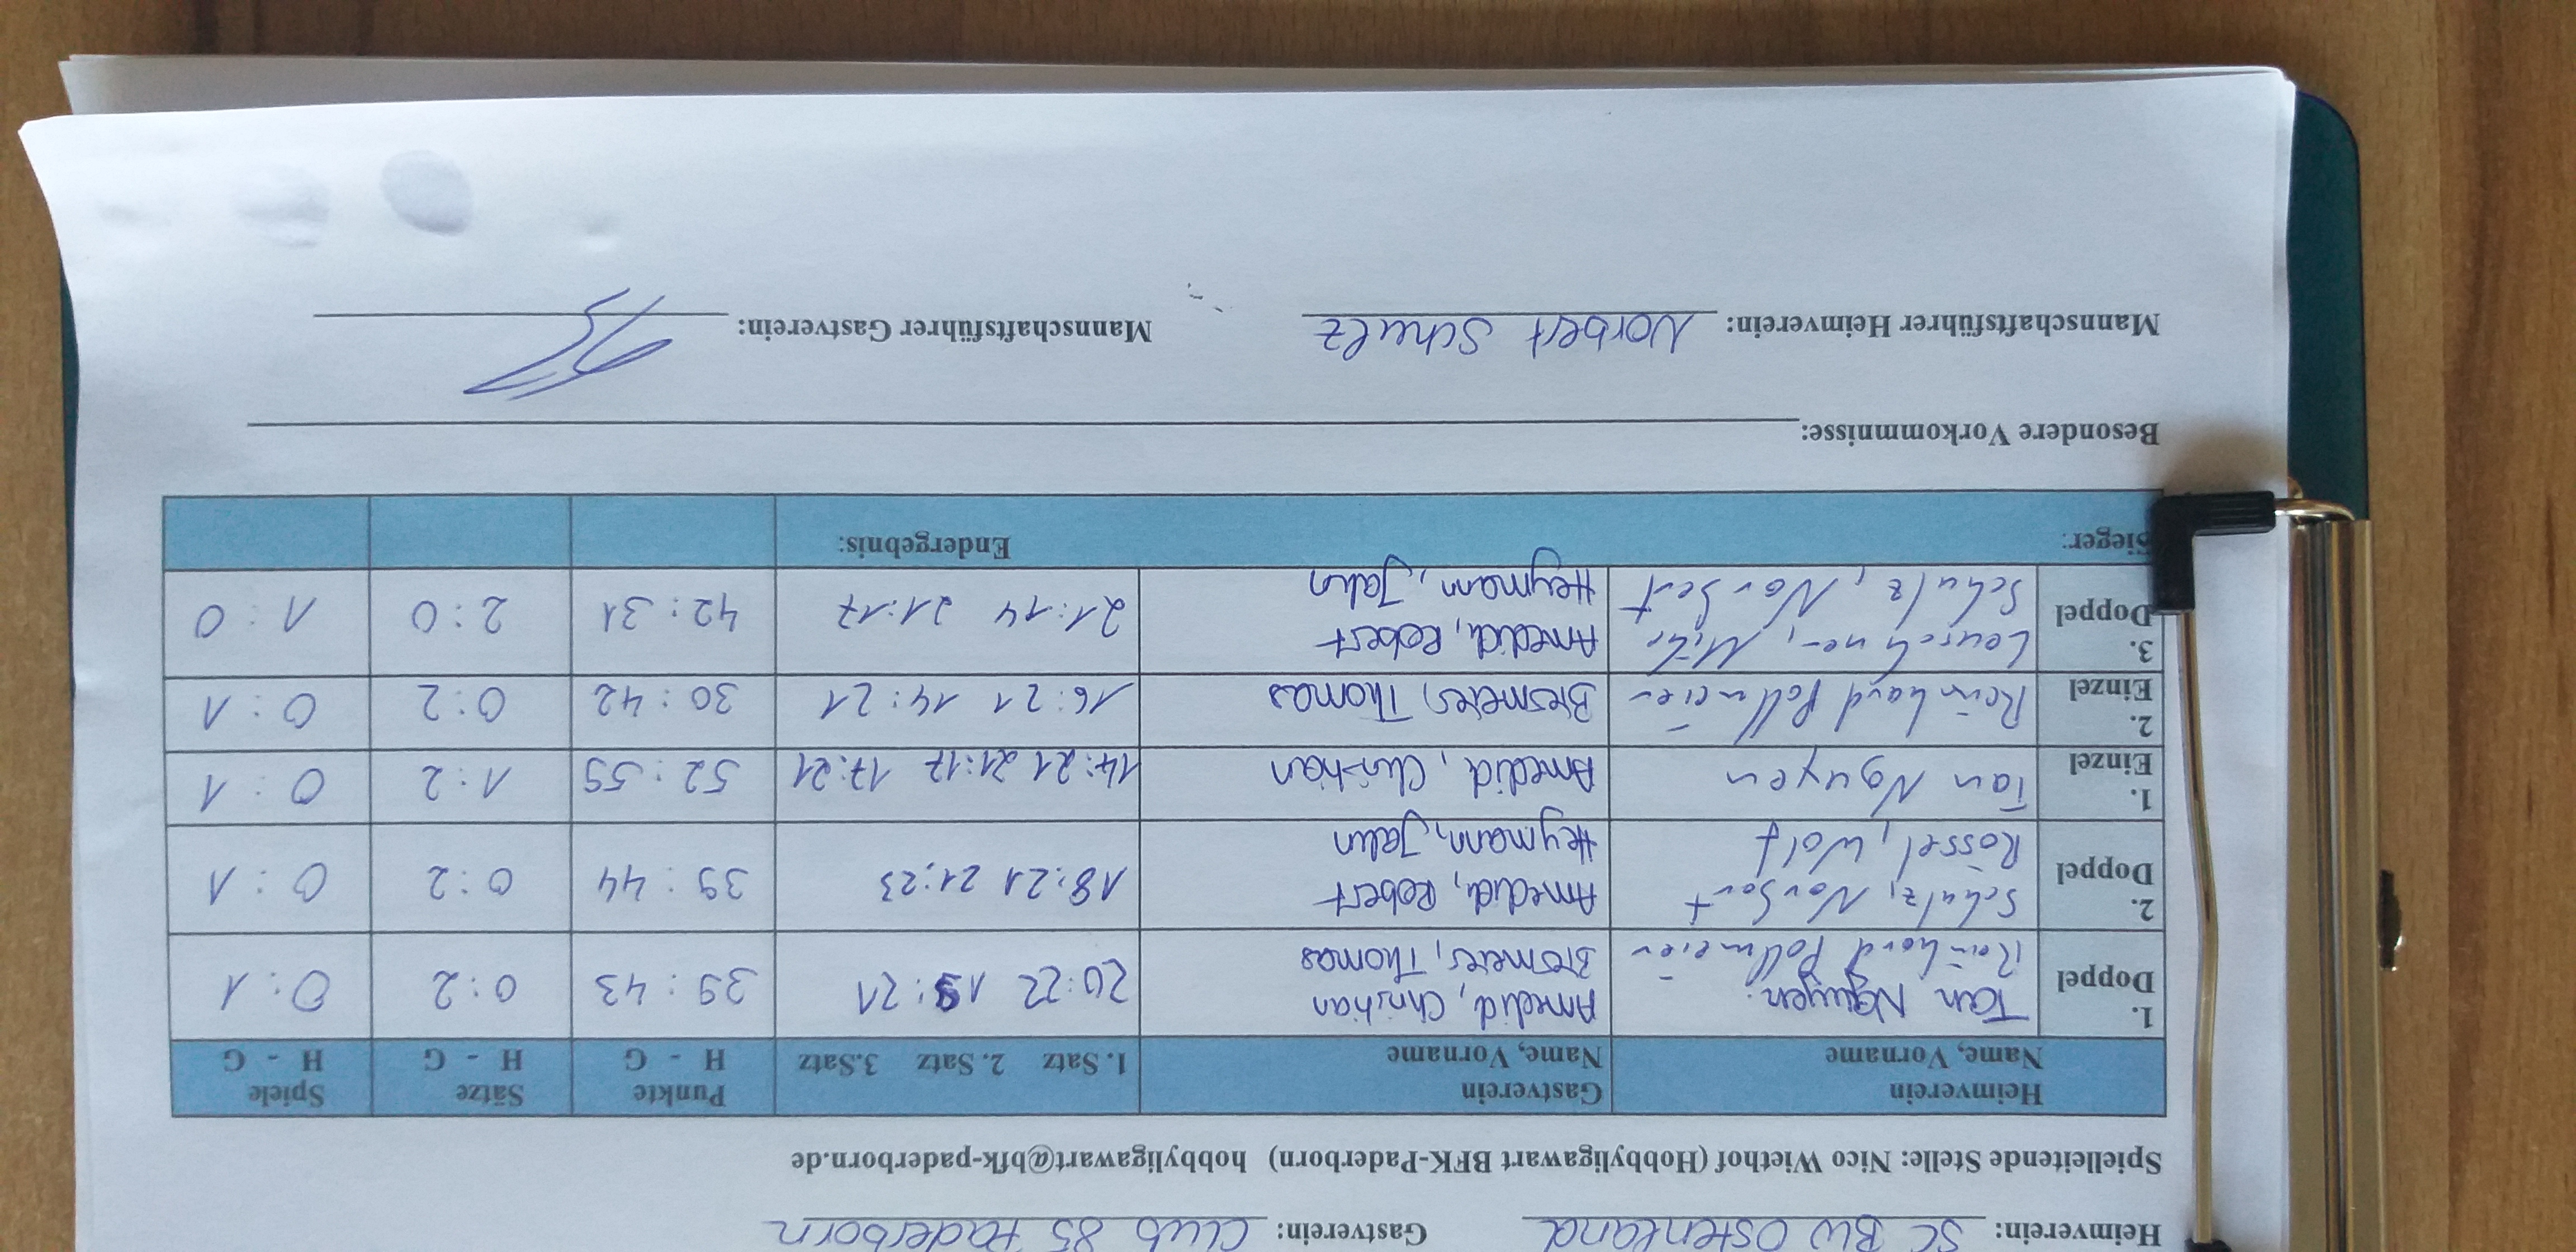 Heimverein: SC BW Ostenland Gastverein: Club 85 Paderborn
Spielleitende Stelle: Nico Wiethof (Hobbyligawart BFK-Paderborn) hobbyligawart@bfk-paderborn.de
Heimverein Gastverein Punkte Sätze Spiele
Name, Vorname Name, Vorname 1. Satz 2. Satz 3.Satz H - G H - G H - G
1. Tan Nguyen Amedick, Christian 20:22 19:21 39:43 0:2 0:1
Doppel Reinhard Pollmeier Bresmeier, Thomas
2. Schulz, Norbert Amedick, Robert 18:21 21:23 39:44 0:2 0:1
Doppel Rössel, Wolf Heymann, Jalin
1. Tan Nguyen Amedick, Christian 14:21 21:17 17:21 52:59 1:2 0:1
Einzel
2. Reinhard Pollmeier Bresmeier, Thomas 16:21 14:21 30:42 0:2 0:1
Einzel
3. Amedick, Robert 21:14 21:17 42:31 2:0 1:0
Doppel Schulz, Norbert Heymann, Jalin
Sieger: Endergebnis:
Besondere Vorkommnisse:
Mannschaftsführer Heimverein: Norbert Schulz Mannschaftsführer Gastverein: